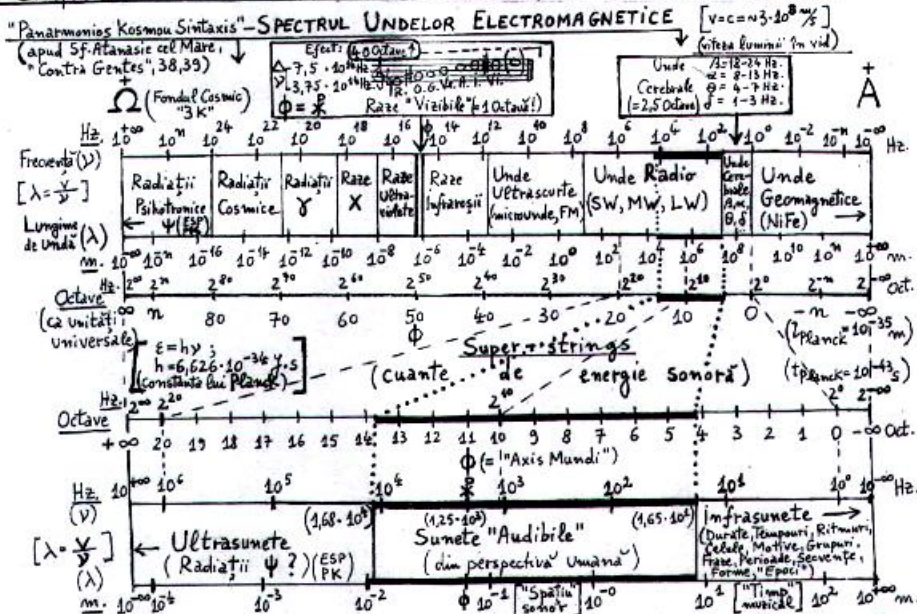 "Panarmonios Kosmou Sintaxis" – SPECTRUL UNDELOR ELECTROMAGNETICE
[V=c=~3·10⁸ m/s]
(viteza luminii în vid)
(apud Sf. Atanasie cel Mare,
"Contra Gentes", 38,39)
Efect: (40 Octave↑)
Δ - 7,5 · 10¹⁴ Hz
ν - 3,75 · 10¹⁴ Hz
R. O. G. V. A. I. Vi.
Raze "Vizibile" (=1 Octavă!)
Unde
Cerebrale
(=2,5 Octave)
β=18-24 Hz.
α = 8-13 Hz.
θ = 4-7 Hz.
δ = 1-3 Hz.
Ω (Fondul Cosmic
"3K")
+
A
Hz. 10⁺∞ 10ⁿ 10²⁴ 10²² 10²⁰ 10¹⁸ 10¹⁶ ϕ 10¹⁴ 10¹² 10¹⁰ 10⁸ 10⁶ 10⁴ 10² 10⁰ 10⁻² 10⁻ⁿ 10⁻∞ Hz.
Frecvență (ν)
[λ = v/ν]
Lungime
de Undă (λ)
Radiații
Psihotronice
← Ψ (ESP PK)
Radiații
Cosmice
Radiații
γ
Raze
X
Raze
Ultra-
violete
Raze
Infraroșii
Unde
Ultrascurte
(microunde, FM)
Unde Radio
(SW, MW, LW)
Unde
Cere-
brale
β, α,
θ, δ
Unde
Geomagnetice
(NiFe) →
m. 10⁻∞ 10⁻ⁿ 10⁻¹⁶ 10⁻¹⁴ 10⁻¹² 10⁻¹⁰ 10⁻⁸ 10⁻⁶ 10⁻⁴ 10⁻² 10⁰ 10² 10⁴ 10⁶ 10⁸ 10¹⁰ 10ⁿ 10⁺∞ m.
Hz. 2⁺∞ 2ⁿ 2⁸⁰ 2⁷⁰ 2⁶⁰ 2⁵⁰ 2⁴⁰ 2³⁰ 2²⁰ 2¹⁰ 2⁰ 2⁻ⁿ 2⁻∞ Oct.
Octave
(ca unități
universale)
∞ n 80 70 60 50 40 30 20 10 0 -n -∞
ϕ
[ε = hν ;
h = 6,626·10⁻³⁴ J·s
(constanta lui Planck)]
Super-strings
(cuante de energie sonoră)
(l Planck = 10⁻³⁵ m)
(t Planck = 10⁻⁴³ s)
Hz. 2⁺∞ 2²⁰ 2¹⁰ 2⁰ 2⁻∞ Hz.
Octave
+∞ 20 19 18 17 16 15 14 13 12 11 10 9 8 7 6 5 4 3 2 1 0 -∞ Oct.
ϕ (="Axis Mundi")
Hz. 10⁺∞ 10⁶ 10⁵ 10⁴ 10³ 10² 10¹ 10⁰ 10⁻∞ Hz.
(ν)
[λ = v/ν]
(λ)
← Ultrasunete
(Radiații Ψ ?) (ESP PK)
(1,68·10⁴)
(1,25·10³)
(1,65·10¹)
Sunete "Audibile"
(din perspectivă umană)
Infrasunete →
(Durate, Tempouri, Ritmuri,
Celule, Motive, Grupuri,
Fraze, Perioade, Secvențe,
Forme, "Epoci")
m. 10⁻∞ 10⁻⁴ 10⁻³ 10⁻² ϕ 10⁻¹ ["Spațiu" sonor] 10⁻⁰ 10¹ ["Timp" muzical] 10² 10⁺∞ m.